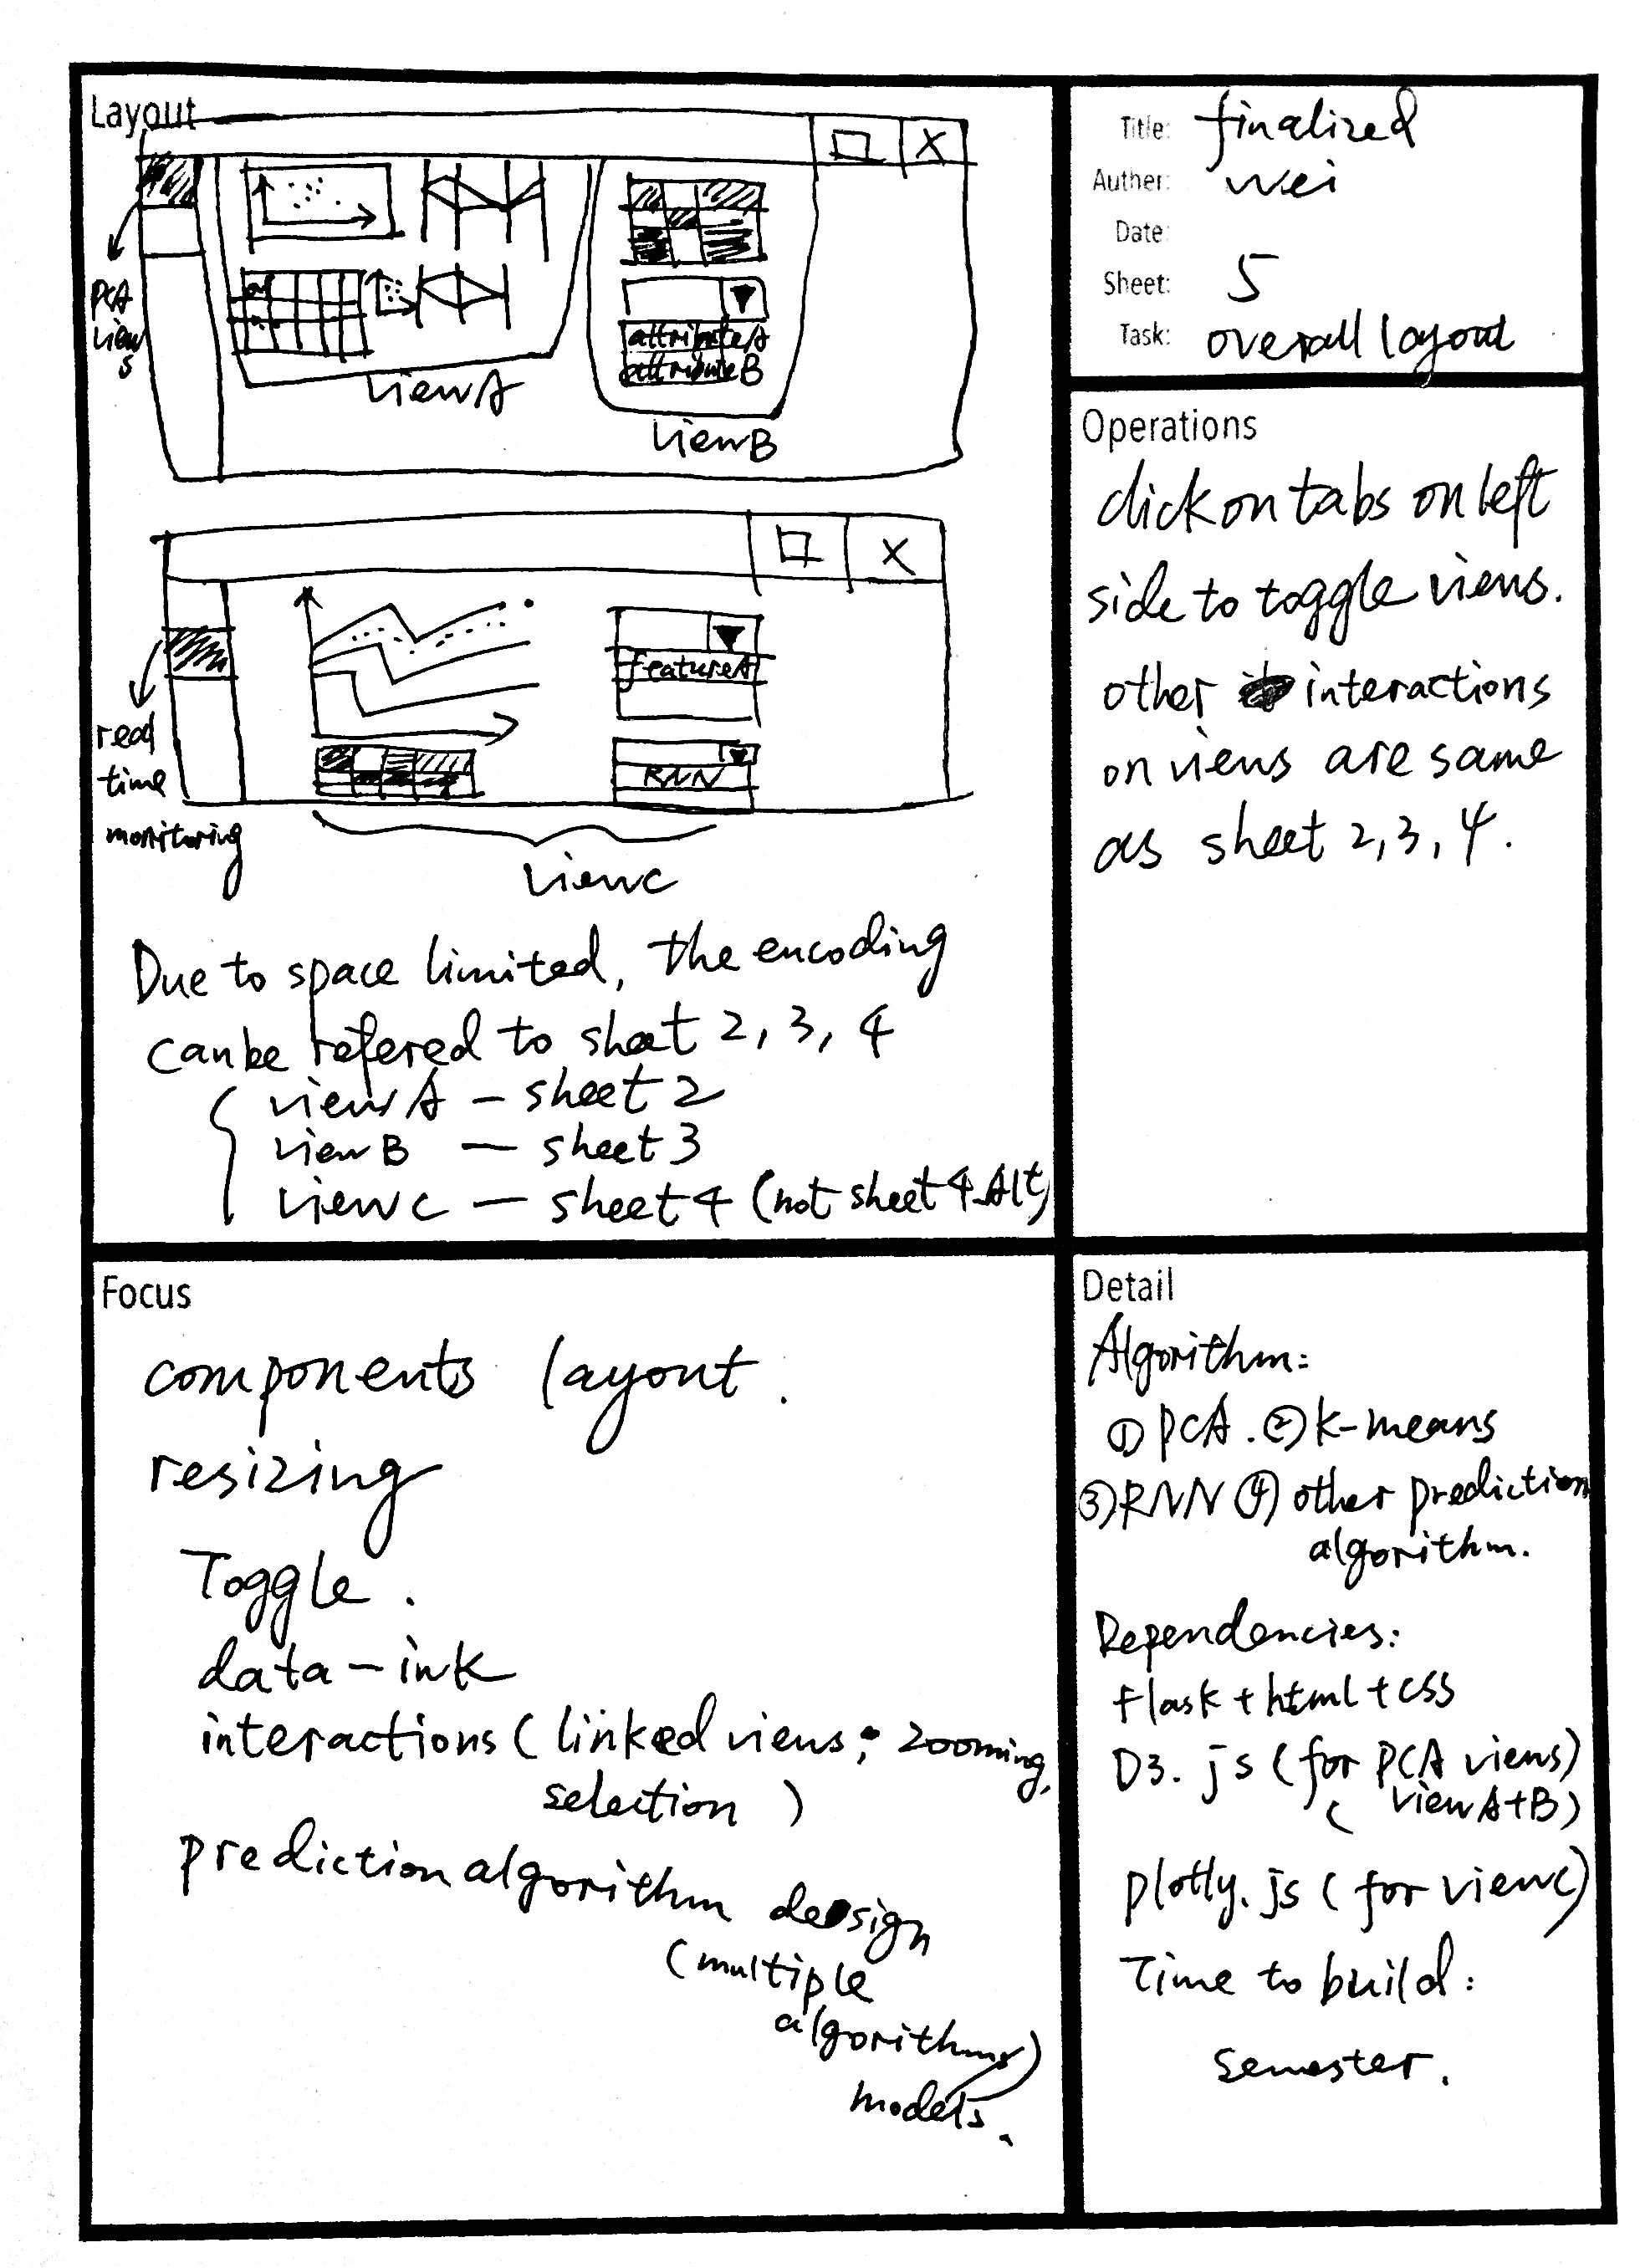 Layout
X
PCA
views
attributeA
attributeB
viewA
viewB
X
featureA
RNN
real
time
monitoring
viewC
Due to space limited, the encoding
can be refered to sheet 2, 3, 4
viewA - sheet 2
viewB - sheet 3
viewC - sheet 4 (not sheet 4-Alt)
Title: finalized
Auther: Wei
Date:
Sheet: 5
Task: overall layout
Operations
click on tabs on left
side to toggle views.
other interactions
on views are same
as sheet 2, 3, 4.
Focus
components layout.
resizing
Toggle.
data-ink
interactions (linked views; zooming,
selection)
prediction algorithm design
(multiple
algorithms)
models.
Detail
Algorithm:
① PCA. ② k-means
③ RNN ④ other prediction
algorithm.
Dependencies:
flask + html + css
D3.js (for PCA views)
( viewA+B)
plotly.js (for viewC)
Time to build:
semester.